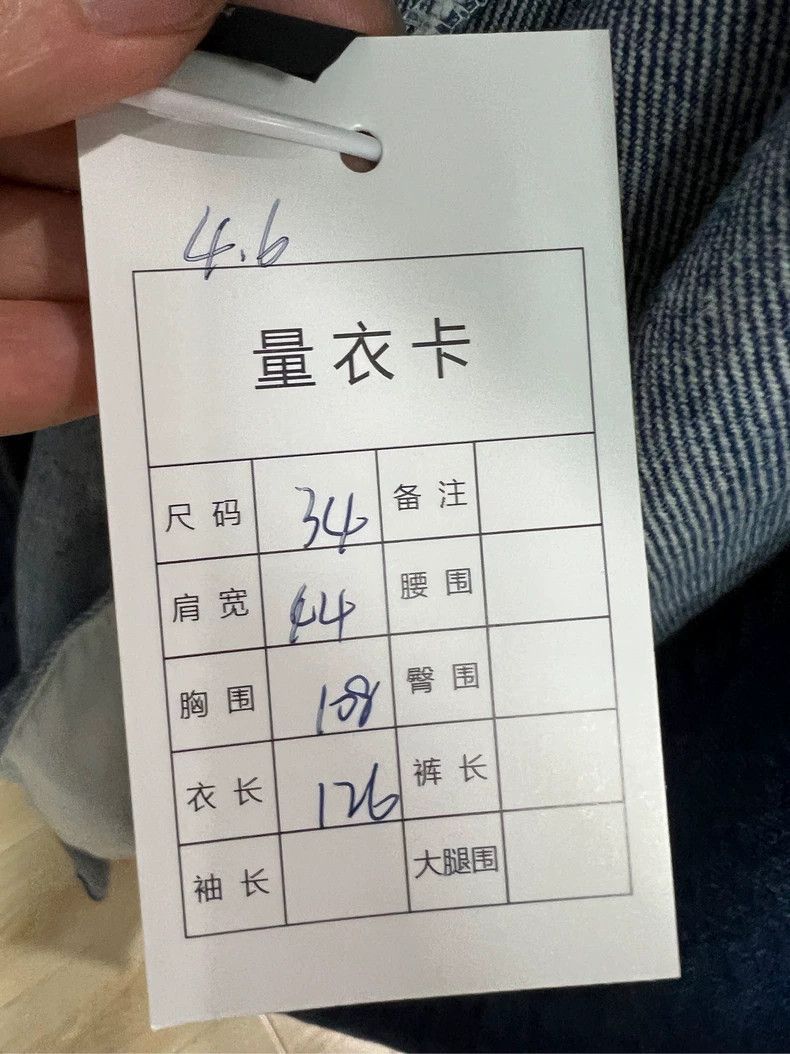 4.6
量衣卡
尺码 34 备注
肩宽 44 腰围
胸围 108 臀围
衣长 126 裤长
袖长 大腿围